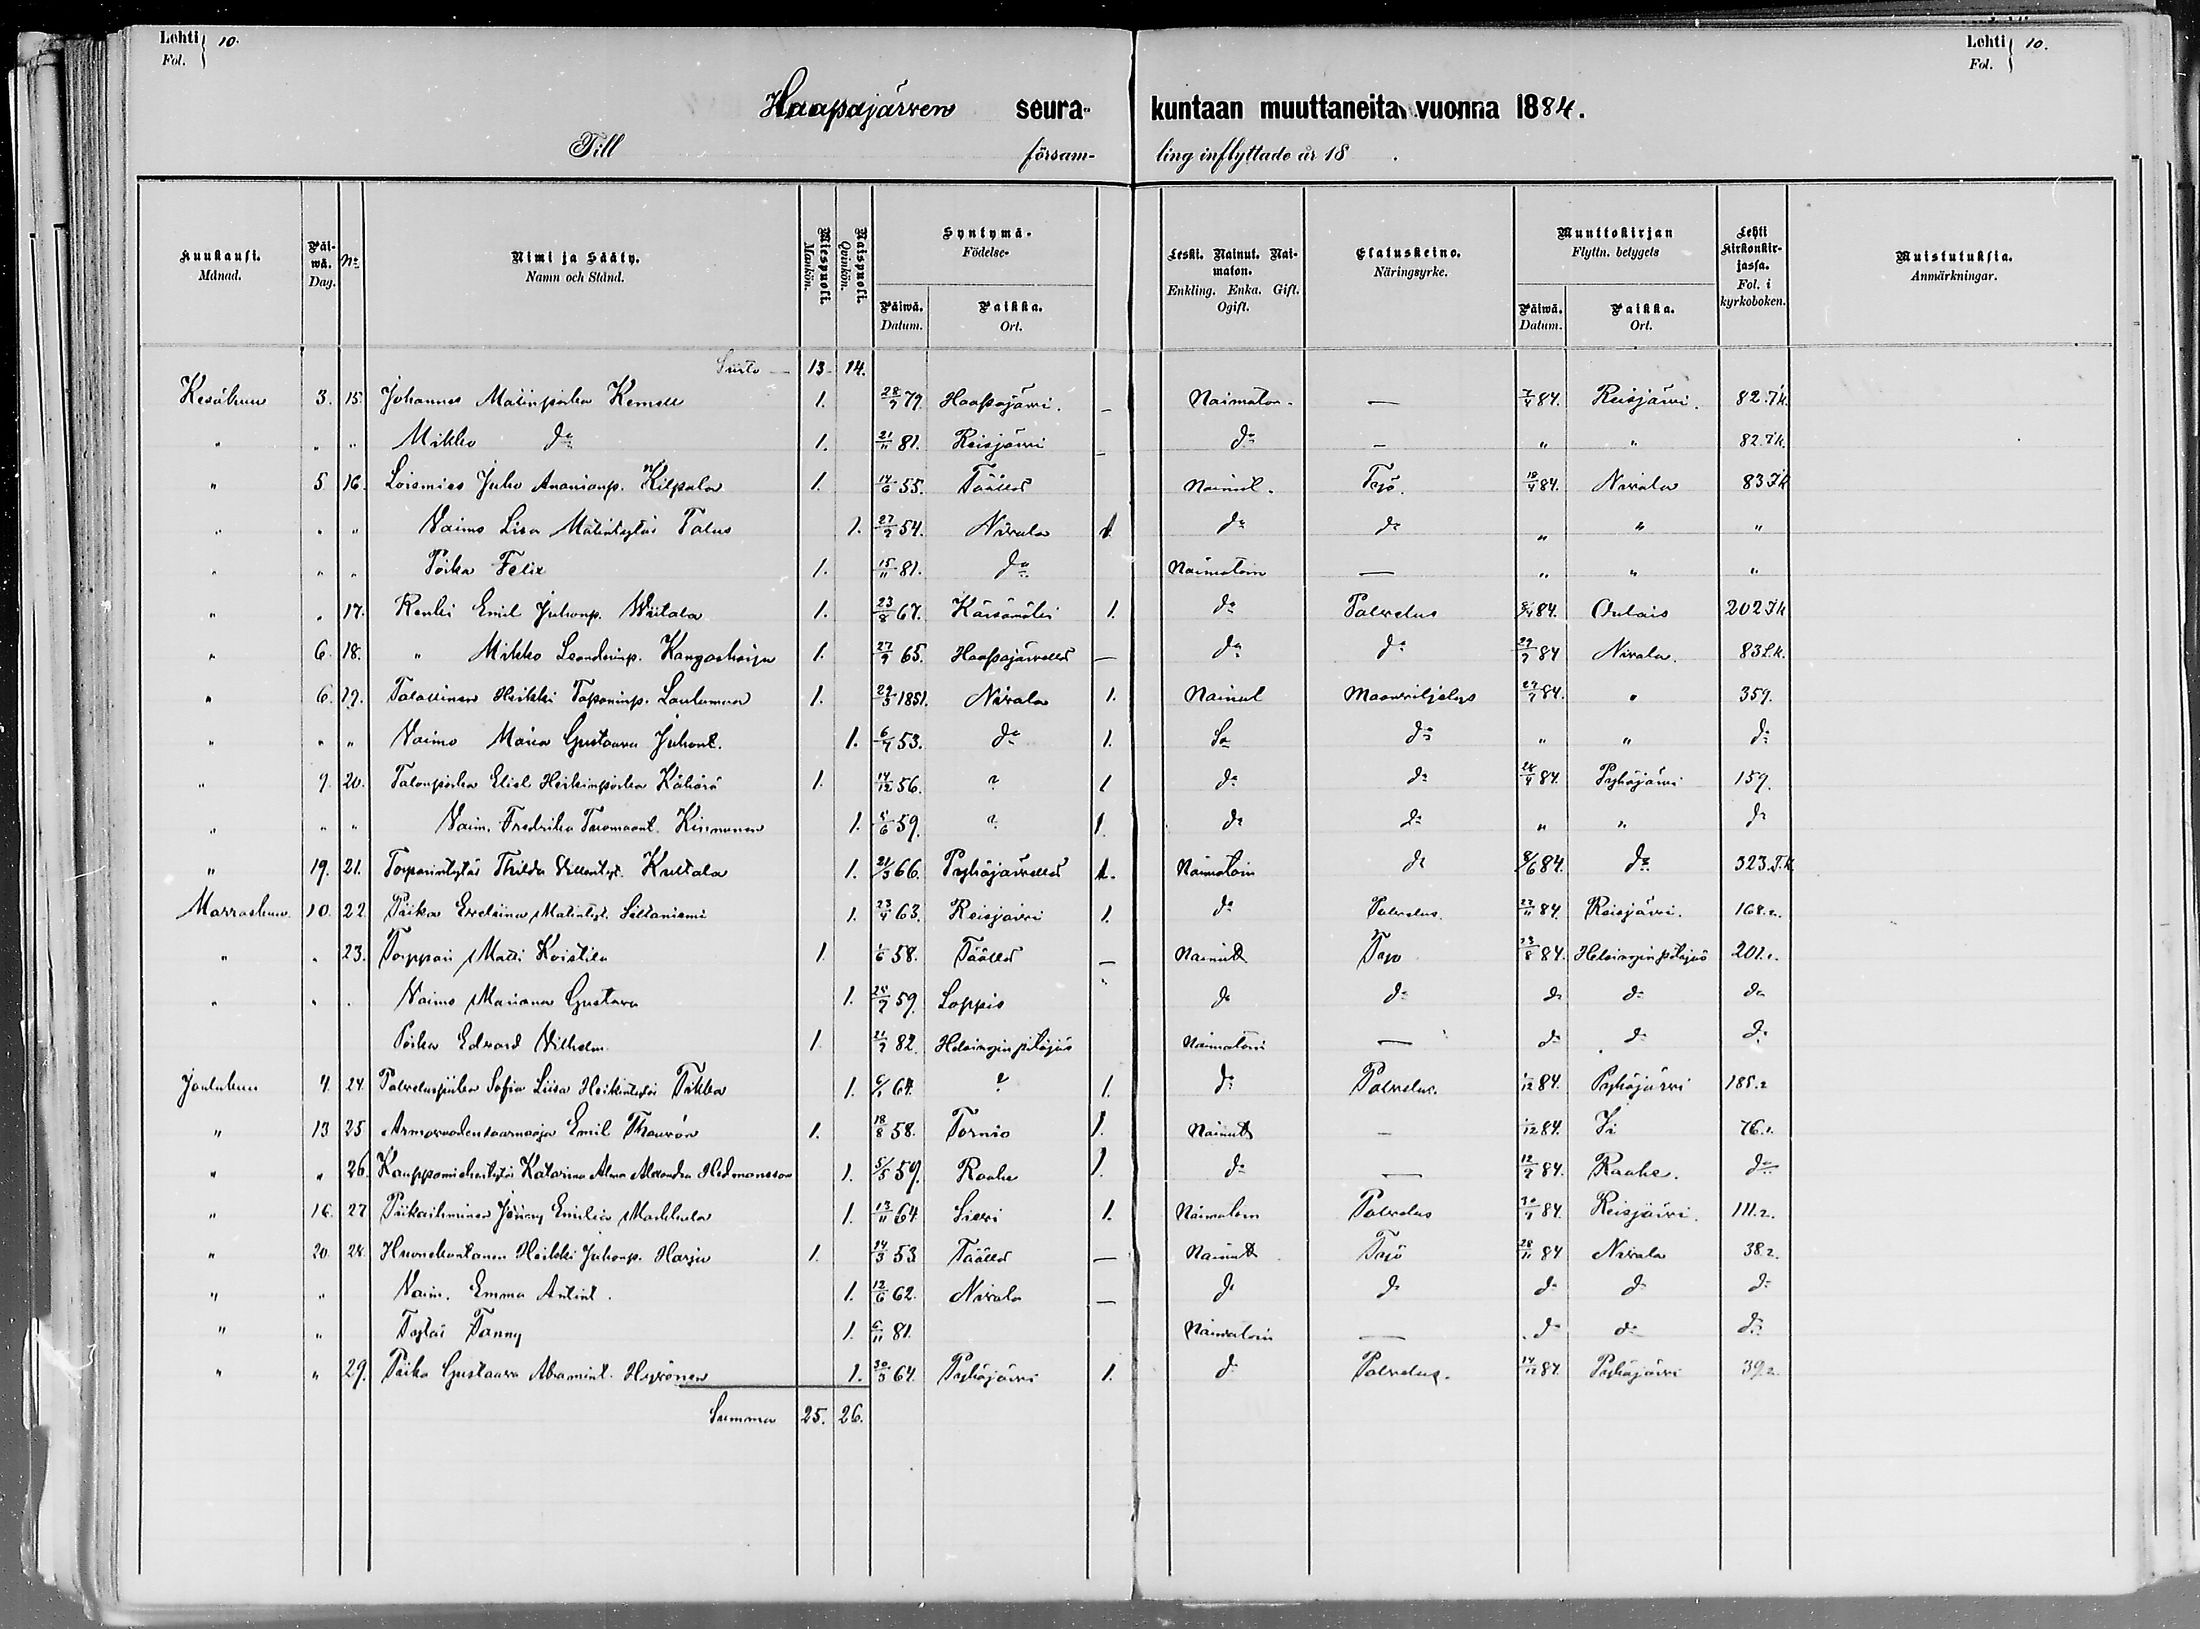 Lehti 10. Lehti 10.
Fol. Fol.
Haapajärven seura- kuntaan muuttaneita vuonna 1884.
Till försam- ling inflyttade år 18 .
Kuukausi. Månad. Päiwä. Day. No Nimi ja Sääty. Namn och Stånd. Miespuoli. Mankön. Naispuoli. Qvinkön. Syntymä- Födelse- Päiwä. Datum. Paikka. Ort. Leski. Nainut. Naimaton. Enkling. Enka. Gift. Ogift. Elatuskeino. Näringsyrke. Muuttokirjan Flyttn. betygets Päiwä. Datum. Paikka. Ort. Lehti kirkonkirjassa. Fol. i kyrkoboken. Muistutuksia. Anmärkningar.
Siirto — 13 14.
Kesäkuu 3. 15. Johannes Matinpoika 1. 28/9 79. Haapajärvi. — Naimaton. — 7/4 84. Reisjärvi. 82.
" " " Mikko do 1. 21/11 81. Reisjärvi — do — " " 82.
" 5 16. Loismies Juho Ananianp. Kilpala 1. 14/6 55. Täällä Nainut. Työ. 18/4 84. Nivala 83
" " " Vaimo Liisa Matintytär Talus 1. 27/9 54. Nivala 1 do do " " "
" " " Poika Felix 1. 15/11 81. do Naimatoin — " " "
" " 17. Renki Emil Juhonp. Wiitala 1. 23/8 67. Kärsämäki 1. do Palvelus 84. Oulais 202
" 6. 18. " Mikko Leanderinp. Kangasharju 1. 27/9 65. Haapajärvellä — do do 84 Nivala. 83
" 6. 19. Talollinen Heikki Tapaninp. Laulumaa 1. 29/3 1851. Nivala 1. Nainut Maanviljelys 84. " 359.
" " " Vaimo Maria Gustaava Juhont. 1. 53. do 1. do " " do
" 9. 20. Talonpoika Elias Heikinpoika Kähärä 1. 14/12 56. ? 1 do do 84. Pyhäjärvi 159.
" " " Vaim. Fredrika Tuomaant. Kinnunen 1. 5/6 59. ? 1. do do " " do
" 19. 21. Torparintytär Thilda Kultala 1. 21/3 66. Pyhäjärvellä 1. Naimatoin do 8/6 84. do 323.
Marraskuu 10. 22. Piika Eveliina Matintyt. Siltaniemi 1. 23/4 63. Reisjärvi 1. do Palvelus. 84. Reisjärvi. 168.
" " 23. Torppari Matti Koistila 1. 1/6 58. Täällä — Nainut Työ 84. Helsinginpitäjäs 201.
" " " Vaimo Mariana Gustava 1. 59. Loppis do do do do do
Poika Edvard Vilhelm 1 82. Helsingin pitäjäs Naimatoin — do do do
Joulukuu 4. 24. Palveluspiika Sofia Liisa Heikintytär Tikka 1. 64. ? 1. do Palvelus. 1/12 84. Pyhäjärvi 185.
" 13 25 Armovuodensaarnaaja Emil Thauvón 1. 18/8 58. Tornio 1. Nainut — 84. Ii 76.
" " 26. Kauppamiehentytär Katarina Alma Alexandra Hedmansson 1. 5/5 59. Raahe 1. do — 12/9 84. Raahe. do
" 16. 27 Piikaihminen Jenny Emilia Markkula 1. 13/11 64. Sievi 1. Naimatoin Palvelus 84. Reisjärvi. 111.
" 20 28. Huonekuntanen Heikki Juhonp. Harju 1. 14/3 53 Täällä — Nainut Työ 28/11 84 Nivala 38
" " Vaim. Emma Antint. 1. 12/6 62. Nivala — do do do do do
" " Tytär Fanny 1. 6/11 81. Naimatoin — do do do
" " 29. Piika Gustaava Abramint. Hyvönen 1. 30/3 64. Pyhäjärvi 1. do Palvelus. 84. Pyhäjärvi 39
Summa 25. 26.